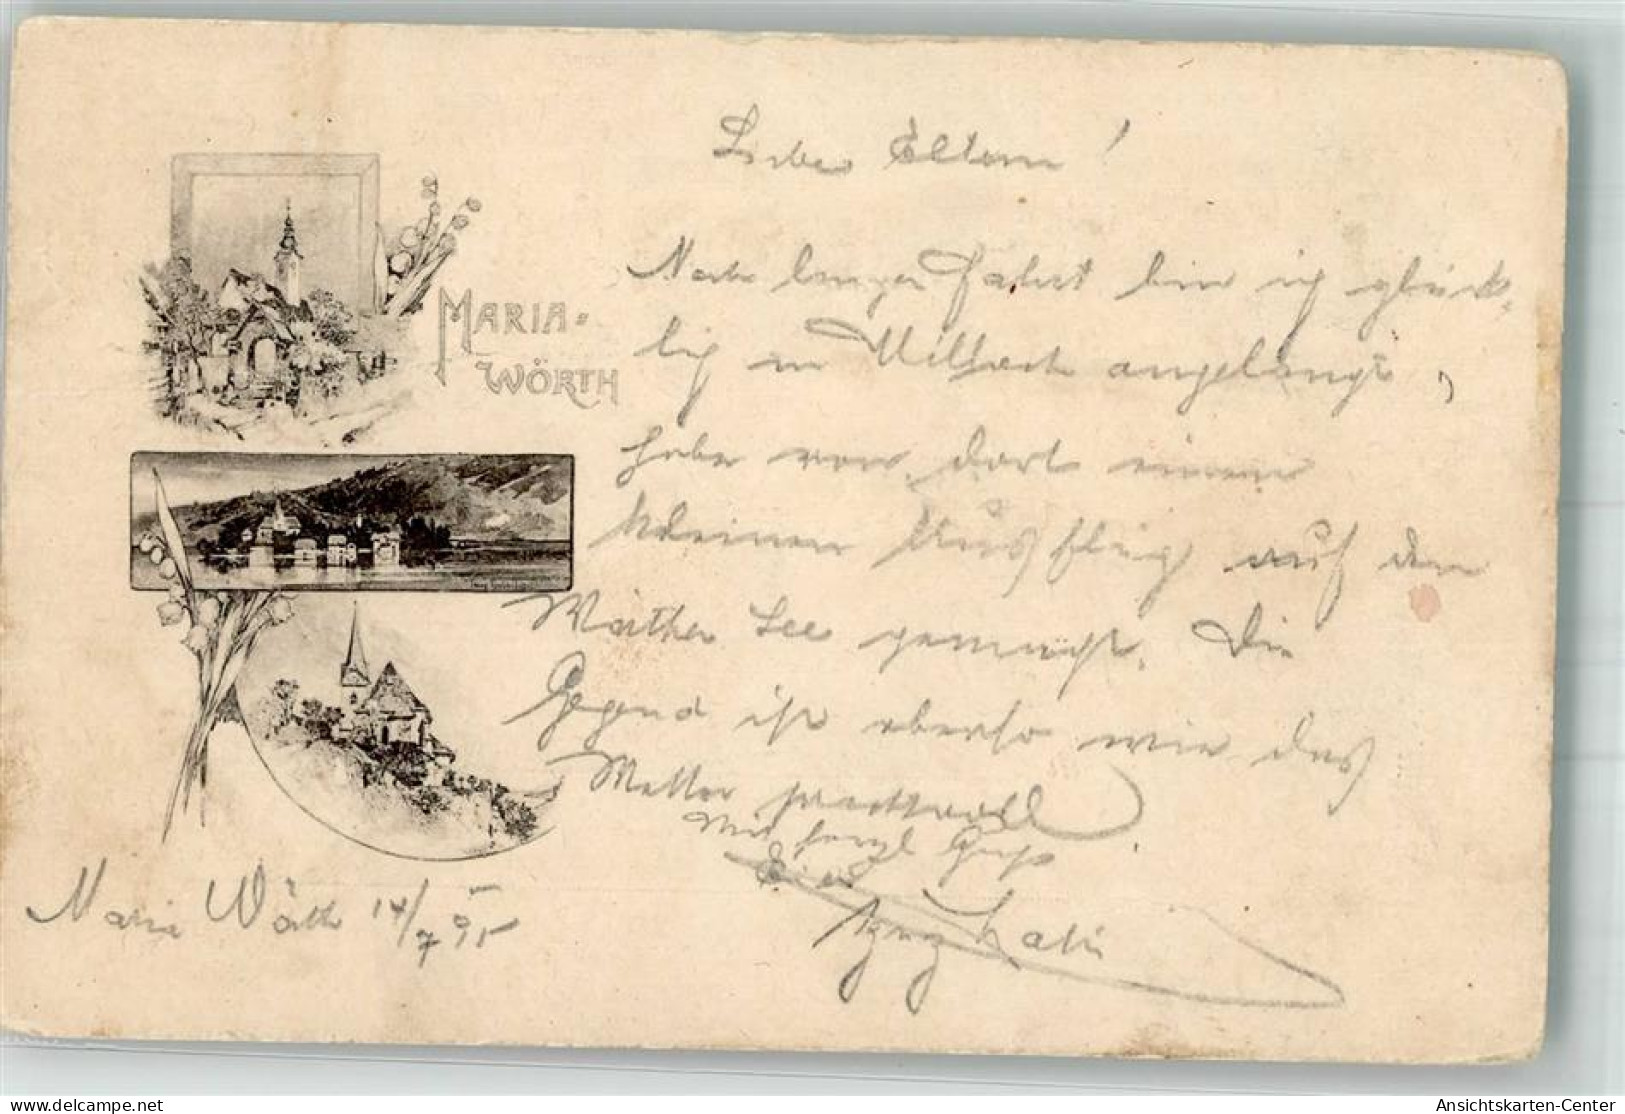 MARIA-
WÖRTH
Liebe Eltern!
Nach langer Fahrt bin ich glück-
lich in Villach angelangt,
habe von dort einen
kleinen Ausflug auf den
Wörther See gemacht. Die
Gegend ist ebenso wie das
Wetter prachtvoll
Mit herzl Gruß
Euer
Maria Wörth 14/7 95
delcampe.net
Ansichtskarten-Center